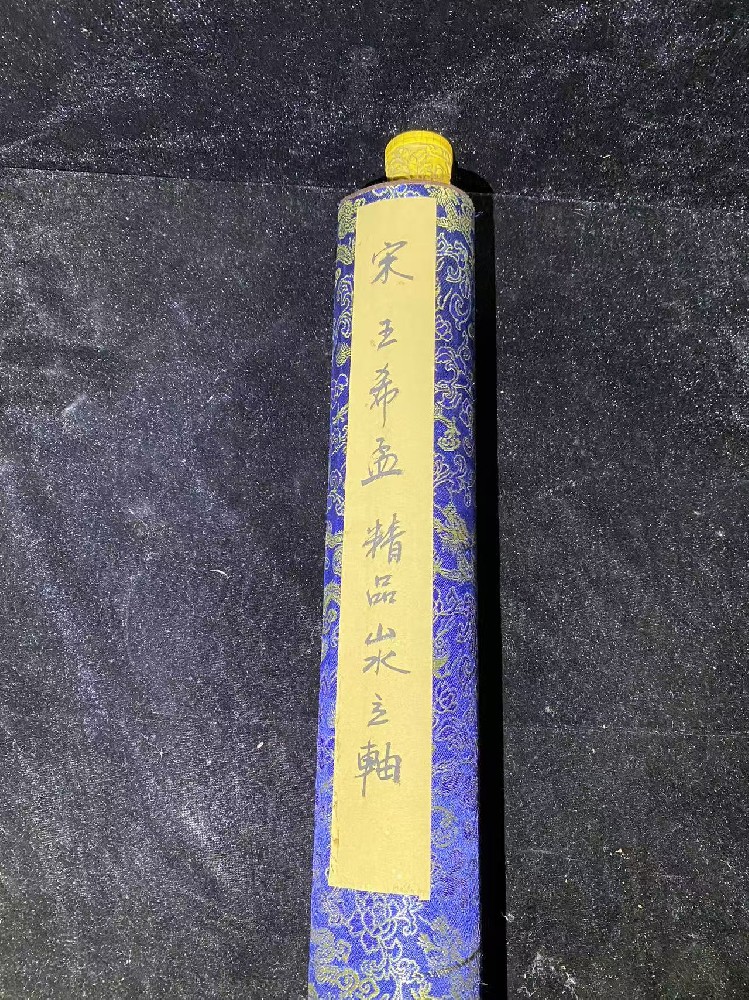 宋 王希孟 精品山水立軸